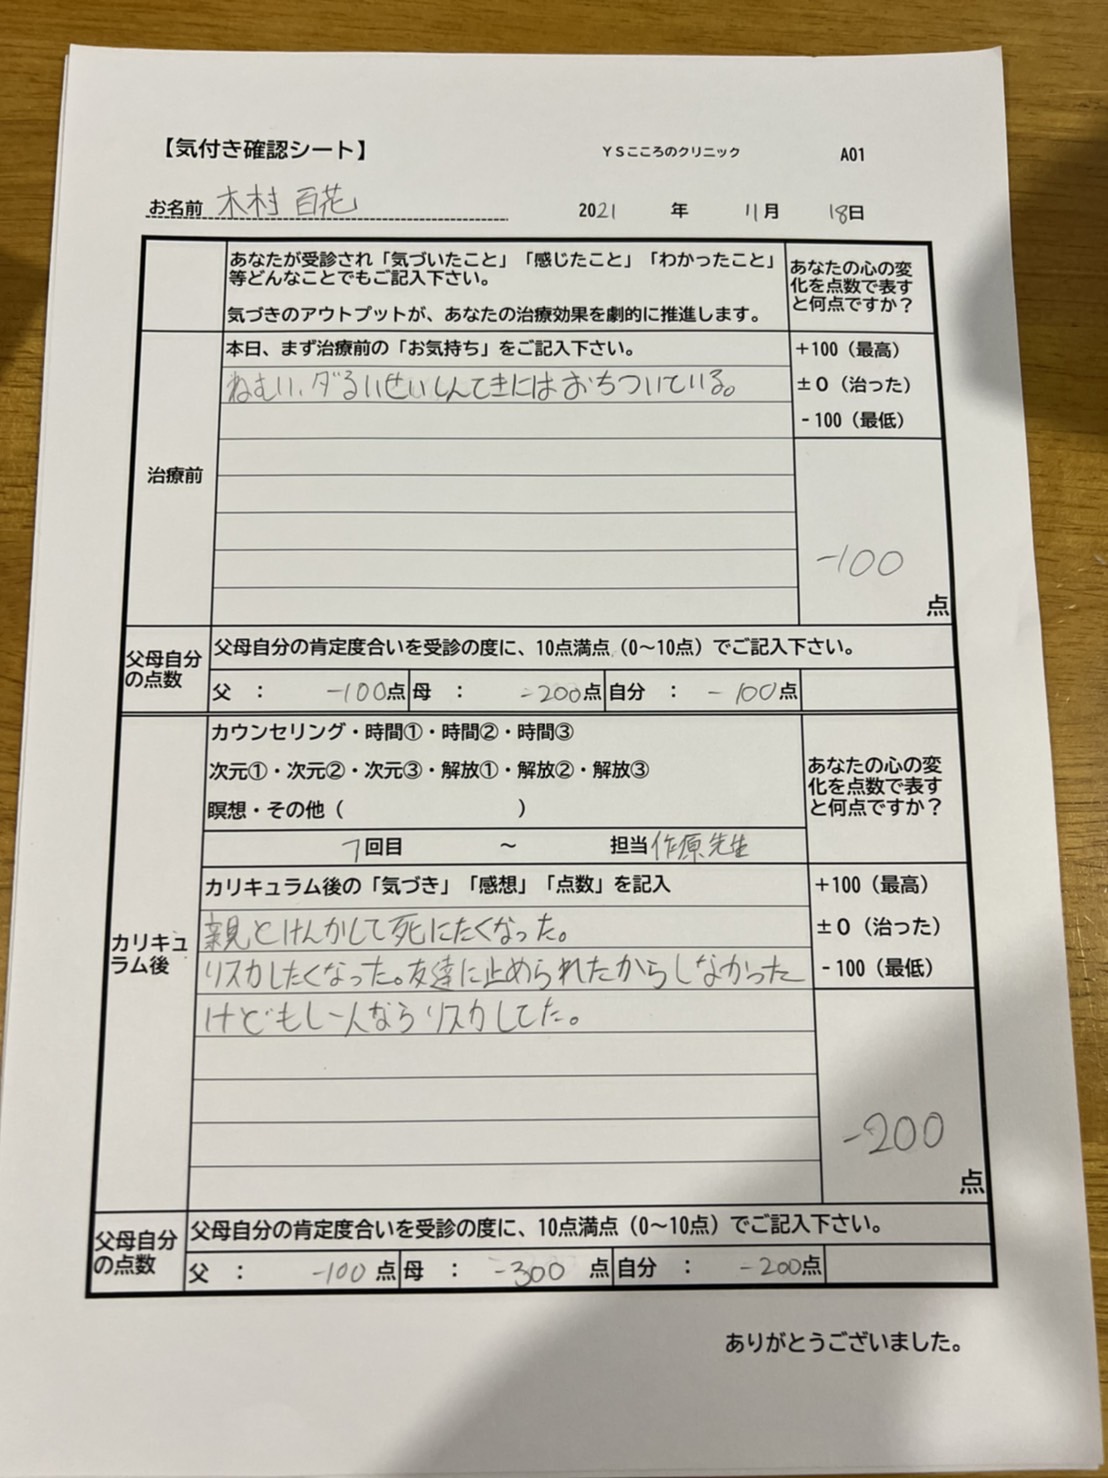 【気付き確認シート】 YSこころのクリニック A01
お名前 木村 百花 2021 年 11月 18日
あなたが受診され「気づいたこと」「感じたこと」「わかったこと」
等どんなことでもご記入下さい。
気づきのアウトプットが、あなたの治療効果を劇的に推進します。
あなたの心の変
化を点数で表す
と何点ですか？
治療前
本日、まず治療前の「お気持ち」をご記入下さい。
ねむい、ダるいせいしんてきにはおちついている。
+100（最高）
±0（治った）
-100（最低）
-100
点
父母自分
の点数
父母自分の肯定度合いを受診の度に、10点満点（0～10点）でご記入下さい。
父 ： -100点 母 ： -200点 自分 ： -100点
カウンセリング・時間①・時間②・時間③
次元①・次元②・次元③・解放①・解放②・解放③
瞑想・その他（ ）
あなたの心の変
化を点数で表す
と何点ですか？
7回目 ～ 担当 作原先生
カリキュ
ラム後
カリキュラム後の「気づき」「感想」「点数」を記入
親とけんかして死にたくなった。
リスカしたくなった。友達に止められたからしなかった
けどもし一人ならリスカしてた。
+100（最高）
±0（治った）
-100（最低）
-200
点
父母自分
の点数
父母自分の肯定度合いを受診の度に、10点満点（0～10点）でご記入下さい。
父 ： -100 点 母 ： -300 点 自分 ： -200点
ありがとうございました。